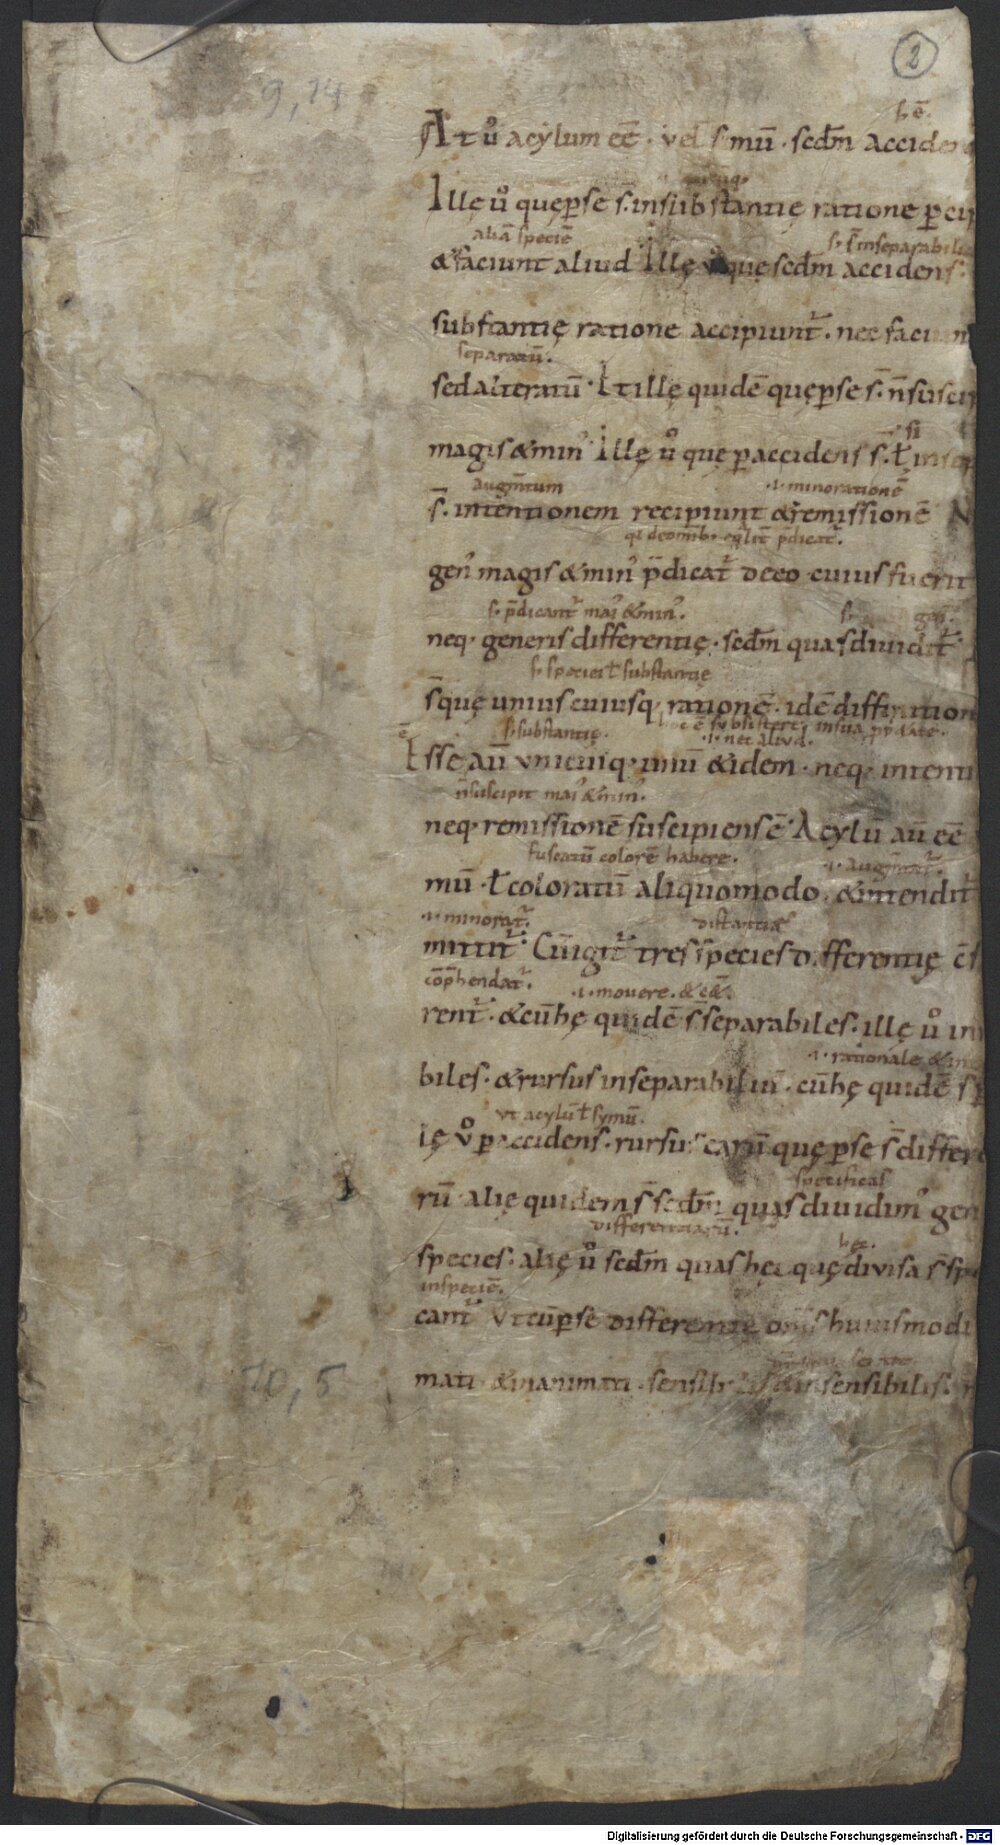 2
9,14
hē.
At u̅ acylum eē · vel simū · scdm accide
Illę u̅ quę p se s̄ in substantię ratione p cip
aliā speciē s. ł inseparabile
& faciunt aliud Illę u̅ quę scdm accidens.
substantię ratione accipiunt̄. nec faciun
separatū.
sed alteratū. Et illę quidē quę p se s̄. n̄ suscip
si
magis & min᾽. Illę u̅ que p accidens s̄. ł insep
augm̄tum .i. minorationē
s̄. intentionem recipiunt & remissionē N
qi de omīb; eqlit̄ p̄dicat̄.
gen᾽ magis & min᾽ p̄dicat̄ de eo cuius fuerit
s. p̄dicant̄ mai᾽ & min᾽. s. gen᾽.
neq; generis differentię. scdm quas diuidit̄
s. speciei ł substantię
s̄ quę unius cuiusq; rationē. idē diffinition
ē s. substantię. hoc ē subsistere in sua p̄p̄etate.
.i. nec aliud.
Esse aū unicuiq; unū & idem. neq; intenti
n̄ suscipit mai᾽ & min᾽.
neq; remissionē suscipiens ē. Acylū aū eē
fuscatū colorē habere. .i. augm̄tat̄.
mū. ł coloratū aliquomodo. & intendit̄
.i. minorat̄. distantiae
mittit̄. Cū igit̄ tres species differentię c̄s
cōp̄hendat̄. .i. mouere. & eē.
rent̄. & cū hę quidē s̄ separabiles. illę u̅ in
.i. rationale & in
biles. & rursus inseparabiliū. cū hę quidē s̄ p
ut acylū ł symū.
ię u̅ p accidens. rursus earū quę p se s̄ differ
specificas
rū alię quidem s̄ scdm quas diuidim᾽ gen
differentiarū. hęc.
species. alię u̅ scdm quas hęc quę diuisa s̄ sp
in speciē.
cant̄ Vt cū p se differentię om̄s huiusmodi
mati & inanimati. sensibilis & insensibilis.
10,5
Digitalisierung gefördert durch die Deutsche Forschungsgemeinschaft - DFG